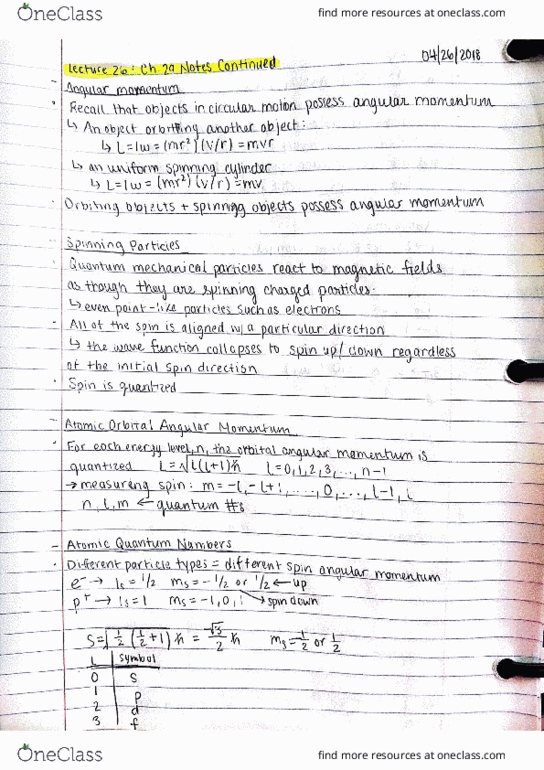 OneClass
find more resources at oneclass.com
04/26/2018
Lecture 26: Ch 29 Notes Continued
- Angular momentum
• Recall that objects in circular motion possess angular momentum
↳ An object orbiting another object:
↳ L=Iω=(mr²)(v/r)=mvr
↳ an uniform spinning cylinder
↳ L=Iω=(mr²)(v/r)=mv
• Orbiting objects + spinning objects possess angular momentum
- Spinning Particles
• Quantum mechanical particles react to magnetic fields
as though they are spinning charged particles.
↳ even point-like particles such as electrons
• All of the spin is aligned w/ a particular direction
↳ the wave function collapses to spin up/down regardless
of the initial spin direction
• Spin is quantized
- Atomic Orbital Angular Momentum
• For each energy level, n, the orbital angular momentum is
quantized L=√l(l+1)ℏ l=0,1,2,3,...,n-1
→ measuring spin: m=-l,-l+1,...,0,...,l-1,l
n, l, m ← quantum #s
- Atomic Quantum Numbers
• Different particle types = different spin angular momentum
e⁻ → ls = 1/2 ms = -1/2 or 1/2 ← up
p⁺ → ls = 1 ms = -1, 0, 1 → spin down
S=√1/2(1/2+1)ℏ = √3/2 ℏ ms = -1/2 or 1/2
L symbol
0 s
1 p
2 d
3 f
OneClass
find more resources at oneclass.com